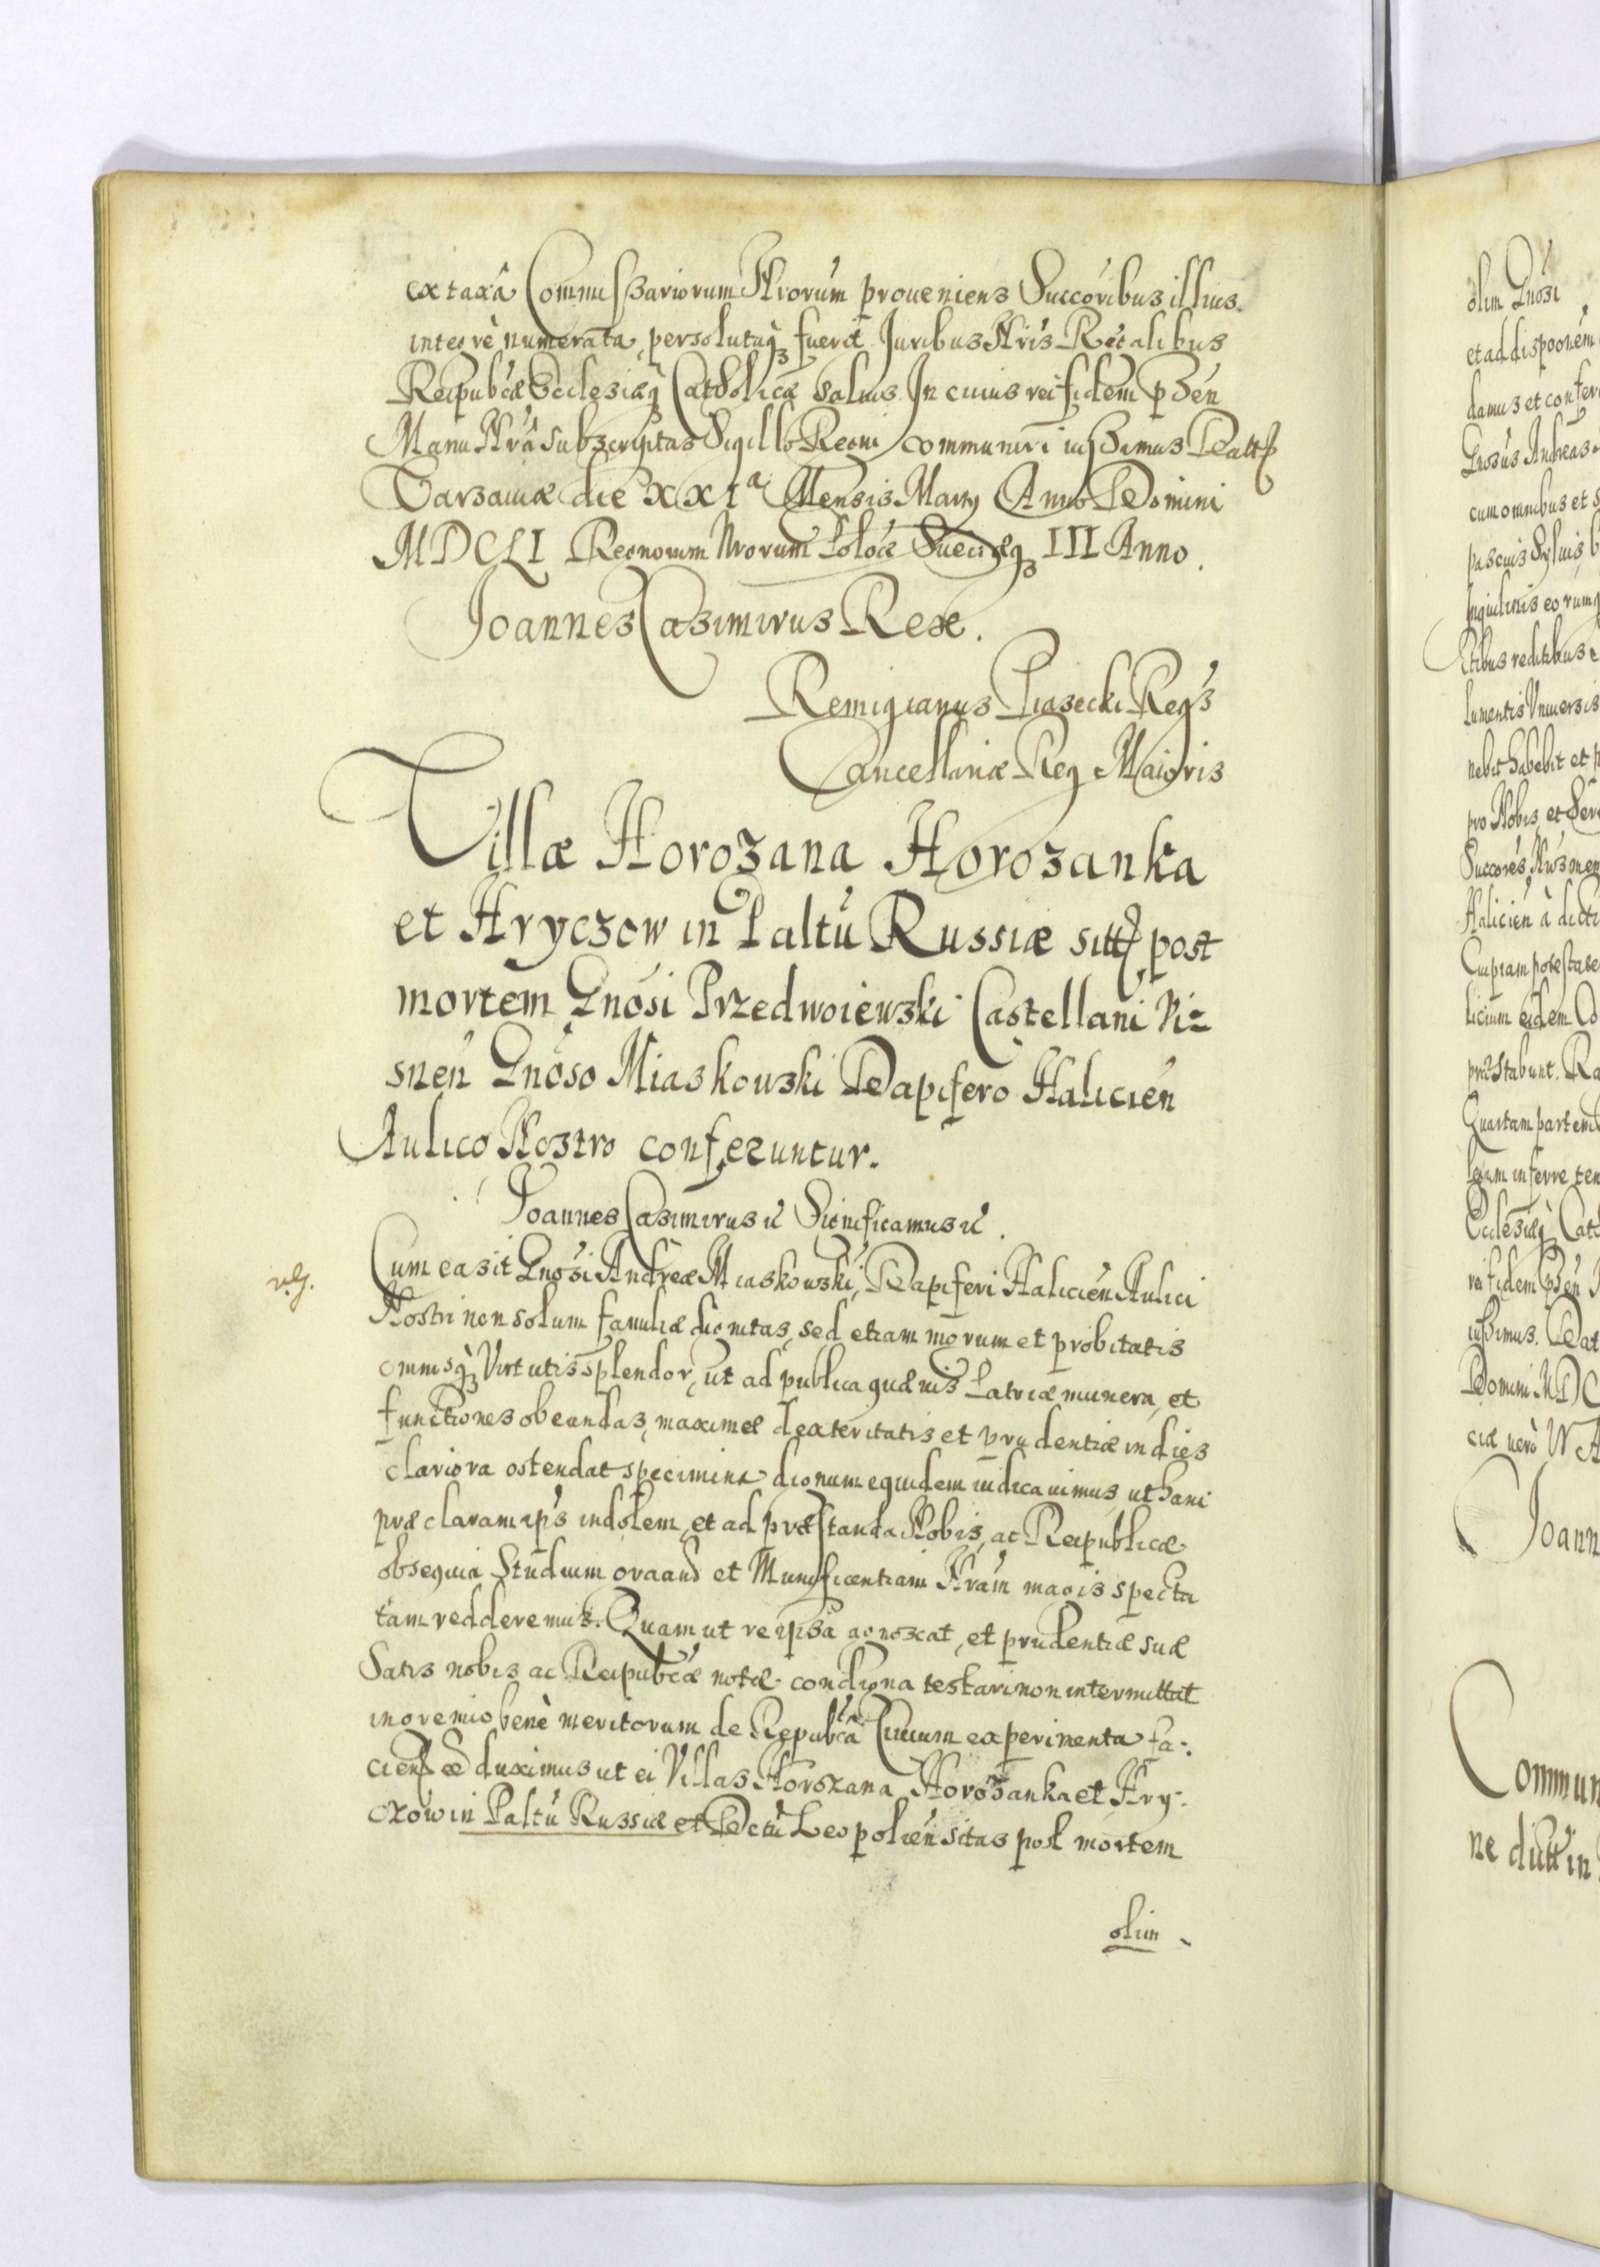 ex taxa Commissariorum Nrorum proueniens Succoribus illius
integrè numerata, persolutaq fuerit Iuribus Nris Regalibus
Reipubcæ Ecclesiæq Catholicæ saluis. In cuius rei fidem pnsen
Manu Nra subscriptas Sigillo Regni communiri iussimus Datt
Varsauiæ die XXIa Mensis Martij Anno Domini
MDCLI Regnorum Nrorum Polon Sueciæq III Anno.
Joannes Casimirus Rex.
Remigianus Piasecki Regs
Cancellariæ Reg Maioris
Villæ Horozana Horozanka
et Hryczow in Paltu Russiæ sitt post
mortem Gnosi Przedwoiewski Castellani Vi-
snen Gnoso Miaskowski Dapifero Halicien
Aulico Nostro conferuntur.
Joannes Casimirus etc Significamus etc.
Cum ea sit Gnosi Andreæ Miaskowski, Dapiferi Halicien Aulici
Nostri non solum familiæ dignitas, sed etiam morum et probitatis
omnisq Virtutis splendor, ut ad publica quæuis Patriæ munera, et
functiones obeundas, maximæ dexteritatis et prudentiæ in dies
clariora ostendat specimina dignum equidem iudicauimus ut hanc
præclaram ips indolem, et ad præstanda Nobis, ac Reipublicæ
obsequia Studium ornand et Munificentiam Nram magis specta
tam redderemus. Quam ut reipsa agnoscat, et prudentiæ suæ
Satis nobis ac Reipubcæ notæ condigna testari non intermittat
in gremio benè meritorum de Repubca Ciuium experimenta fa-
ciend duximus ut ei Villas Horozana Horozanka et Hry-
czow in Paltu Russiæ et Dctu Leopolien sitas post mortem
olim
olim Gnosi
et ad disponem
damus et confer
Gnosus Andreas
cum omnibus et s
pascuis Syluis, b
Inquilinis eorumq
reditibus
lumentis Vniuersis
nebit habebit et p
pro Nobis, et Ser
Succores Nros mem
Halicien à dicti
Cuipiam potestate
licium eidem Co
præstabunt. Ra
Quartam partem
legum inferre ten
Ecclesiæq Cath
rei fidem pnsen
iussimus. Dat
Domini MDC
ciæ verò IV A
Joann
Commun
ne dutt in